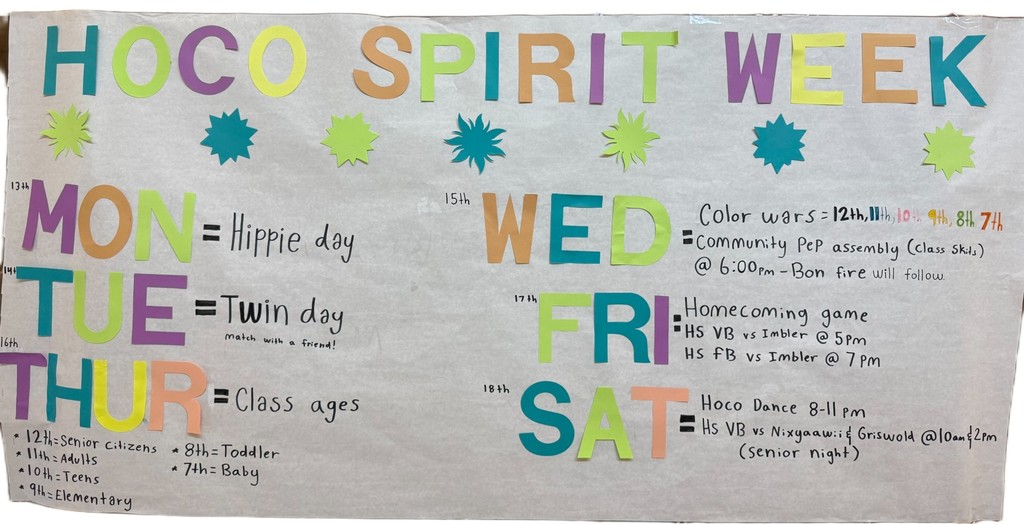 HOCO SPIRIT WEEK
13th MON = Hippie day
14th TUE = Twin day
match with a friend!
16th THUR = Class ages
* 12th = Senior Citizens
* 11th = Adults
* 10th = Teens
* 9th = Elementary
* 8th = Toddler
* 7th = Baby
15th WED = Color wars = 12th, 11th, 10th, 9th, 8th 7th
Community PeP assembly (Class Skits)
@ 6:00pm - Bon fire will follow
17th FRI = Homecoming game
HS VB vs Imbler @ 5pm
HS FB vs Imbler @ 7pm
18th SAT = Hoco Dance 8-11 pm
HS VB vs Nixyaawii & Griswold @10am & 2pm
(Senior night)